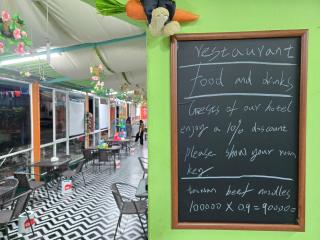 restaurant
food and drinks
Guests of our hotel
enjoy a 10% discount
Please show your room
key
beef noodles
100000 X 0.9 = 90000 =